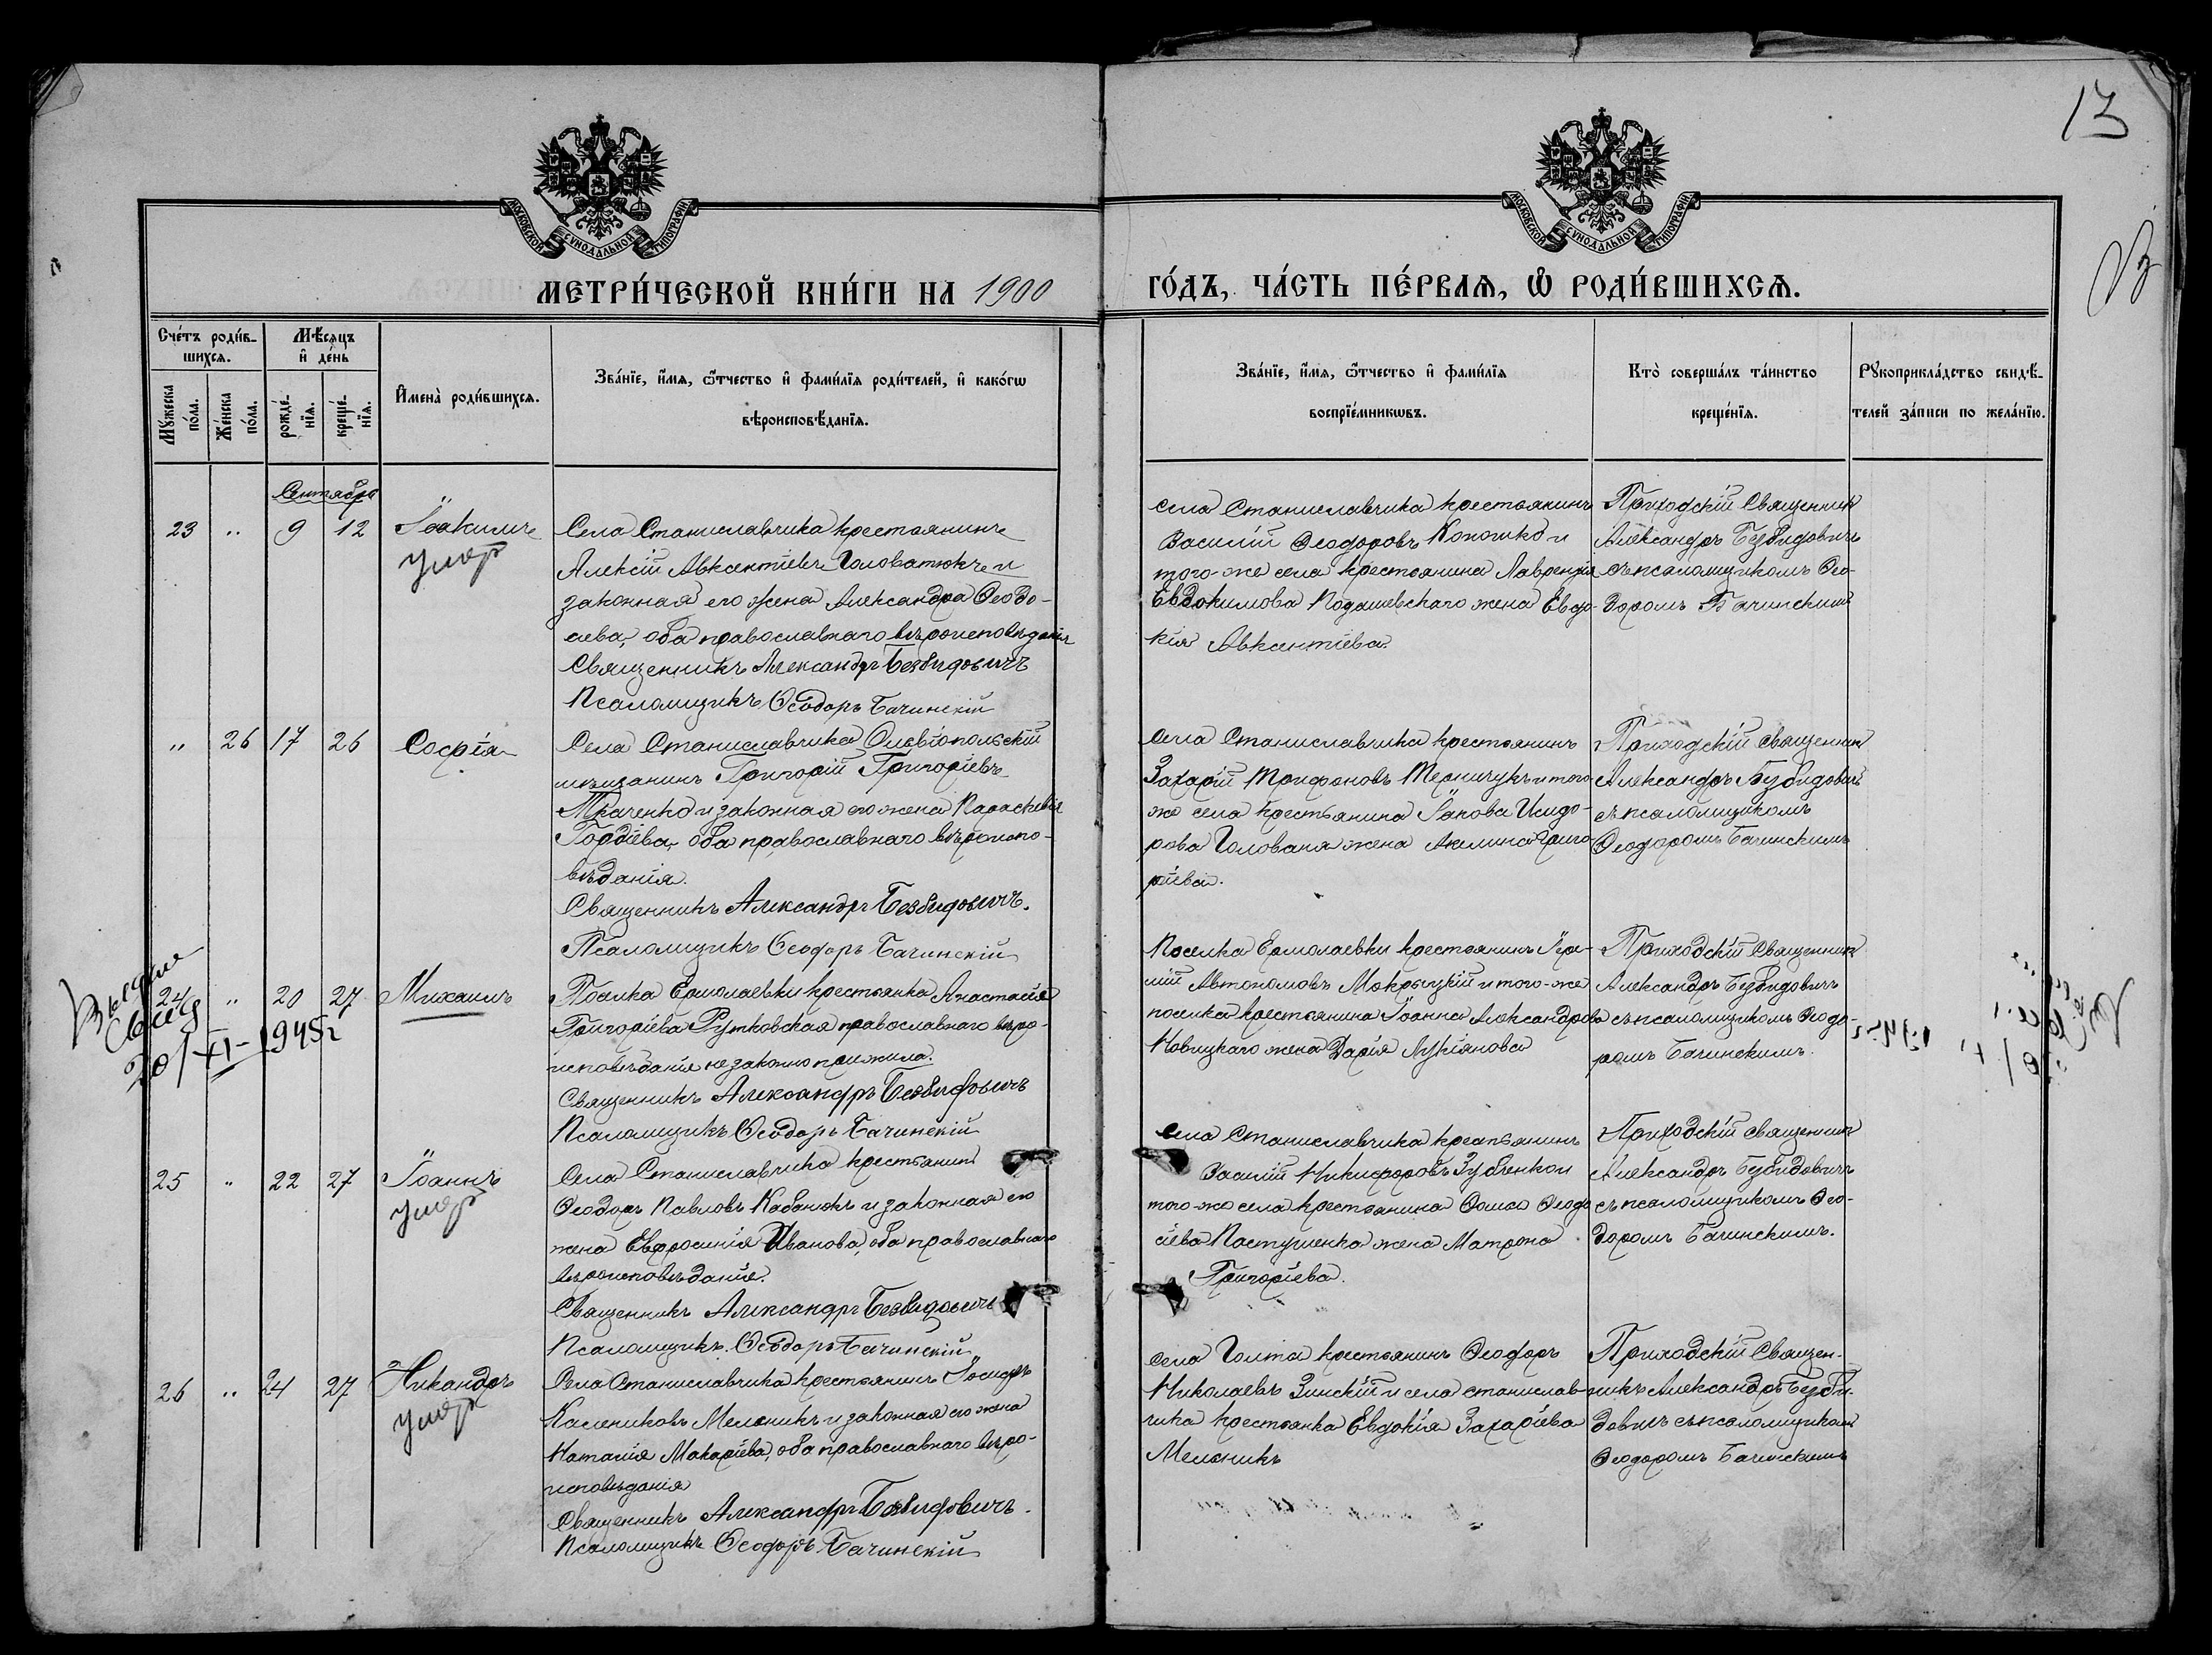 13
МОСКОВСКОЙ СѴНОДАЛЬНОЙ ТИПОГРАФІИ
МОСКОВСКОЙ СѴНОДАЛЬНОЙ ТИПОГРАФІИ
МЕТРИ́ЧЕСКОЙ КНИ́ГИ НА 1900
ГО́ДЪ, ЧА́СТЬ ПЕ́РВАѦ, Ѽ РОДИ́ВШИХСѦ.
Сче́тъ роди́в-
шихсѧ.
Мꙋжеска по́ла.
Же́нска по́ла.
Мѣ́сѧцъ
и҆ де́нь
рожде́-нїѧ.
креще́-нїѧ.
И҆мена̀ роди́вшихсѧ.
Зва́нїе, и҆́мѧ, ѻ҆́тчество и҆ фами́лїѧ роди́телей, и҆ како́гѡ
вѣроисповѣ́данїѧ.
Зва́нїе, и҆́мѧ, ѻ҆́тчество и҆ фами́лїѧ
воспрїе́мникѡвъ.
Кто̀ соверша́лъ та́инство
креще́нїѧ.
Рꙋкоприкла́дство свидѣ́-
телей за́писи по жела́нїю.
Сентябрь
23 " 9 12 Іоакимъ
умер
Села Станиславчика крестьянинъ
Алексій Авксентіевъ Головатюкъ и
законная его жена Александра Ѳеодо-
сіева, оба православнаго вѣроисповѣданія
Священникъ Александръ Безвидовичъ
Псаломщикъ Ѳеодоръ Бачинскій
села Станиславчика крестьянинъ
Василій Ѳеодоровъ Кономко и
того-же села крестьянина Лаврентія
Евдокимова Подашевскаго жена Евдо-
кія Авксентіева.
Приходскій Священникъ
Александръ Безвидовичъ
съ псаломщикомъ Ѳео-
доромъ Бачинскимъ
" 26 17 26 Софія
Села Станиславчика Ольвіопольскій
мѣщанинъ Григорій Григоріевъ
Ткаченко и законная его жена Параскевія
Гордіева, оба православнаго вѣроиспо-
вѣданія.
Священникъ Александръ Безвидовичъ.
Псаломщикъ Ѳеодоръ Бачинскій
Села Станиславчика крестьянинъ
Захарій Трифоновъ Терничукъ и того-
же села крестьянина Іакова Исидо-
рова Голованя жена Акилина Григо-
ріева.
Приходскій священникъ
Александръ Безвидовичъ
съ псаломщикомъ
Ѳеодоромъ Бачинскимъ
Выдана
свид
20/XI-1945г
24 " 20 27 Михаилъ
Поселка Ермолаевки крестьянка Анастасія
Григоріева Рутковская православнаго вѣро-
исповѣданія незаконно прижила.
Священникъ Александръ Безвидовичъ
Псаломщикъ Ѳеодоръ Бачинскій
Поселка Ермолаевки крестьянинъ
Автономовъ Мокрицкій и того-же
поселка крестьянина Іоанна Александрова
Новицкаго жена Дарія Лукіянова
Приходскій Священникъ
Александръ Безвидовичъ
съ псаломщикомъ Ѳеодо-
ромъ Бачинскимъ.
25 " 22 27 Іоаннъ
умер
Села Станиславчика крестьянинъ
Ѳеодоръ Павловъ Кабанюкъ и законная его
жена Евфросинія Иванова, оба православнаго
вѣроисповѣданія.
Священникъ Александръ Безвидовичъ
Псаломщикъ Ѳеодоръ Бачинскій
Села Станиславчика крестьянинъ
Василій Никифоровъ Зубченко и
того-же села крестьянина Ѳомы Ѳеодо-
сіева Пастушенка жена Матрона
Григоріева.
Приходскій священникъ
Александръ Безвидовичъ
съ псаломщикомъ Ѳео-
доромъ Бачинскимъ.
26 " 24 27 Никандръ
умер
Села Станиславчика крестьянинъ Іосифъ
Калениковъ Мельникъ и законная его жена
Наталія Макаріева, оба православнаго вѣро-
исповѣданія
Священникъ Александръ Безвидовичъ.
Псаломщикъ Ѳеодоръ Бачинскій
Села Голта крестьянинъ Ѳеодоръ
Николаевъ Зинскій и села Станислав-
чика крестьянка Евдокія Захаріева
Мельникъ
Приходскій Священ-
никъ Александръ Безви-
довичъ съ псаломщикомъ
Ѳеодоромъ Бачинскимъ